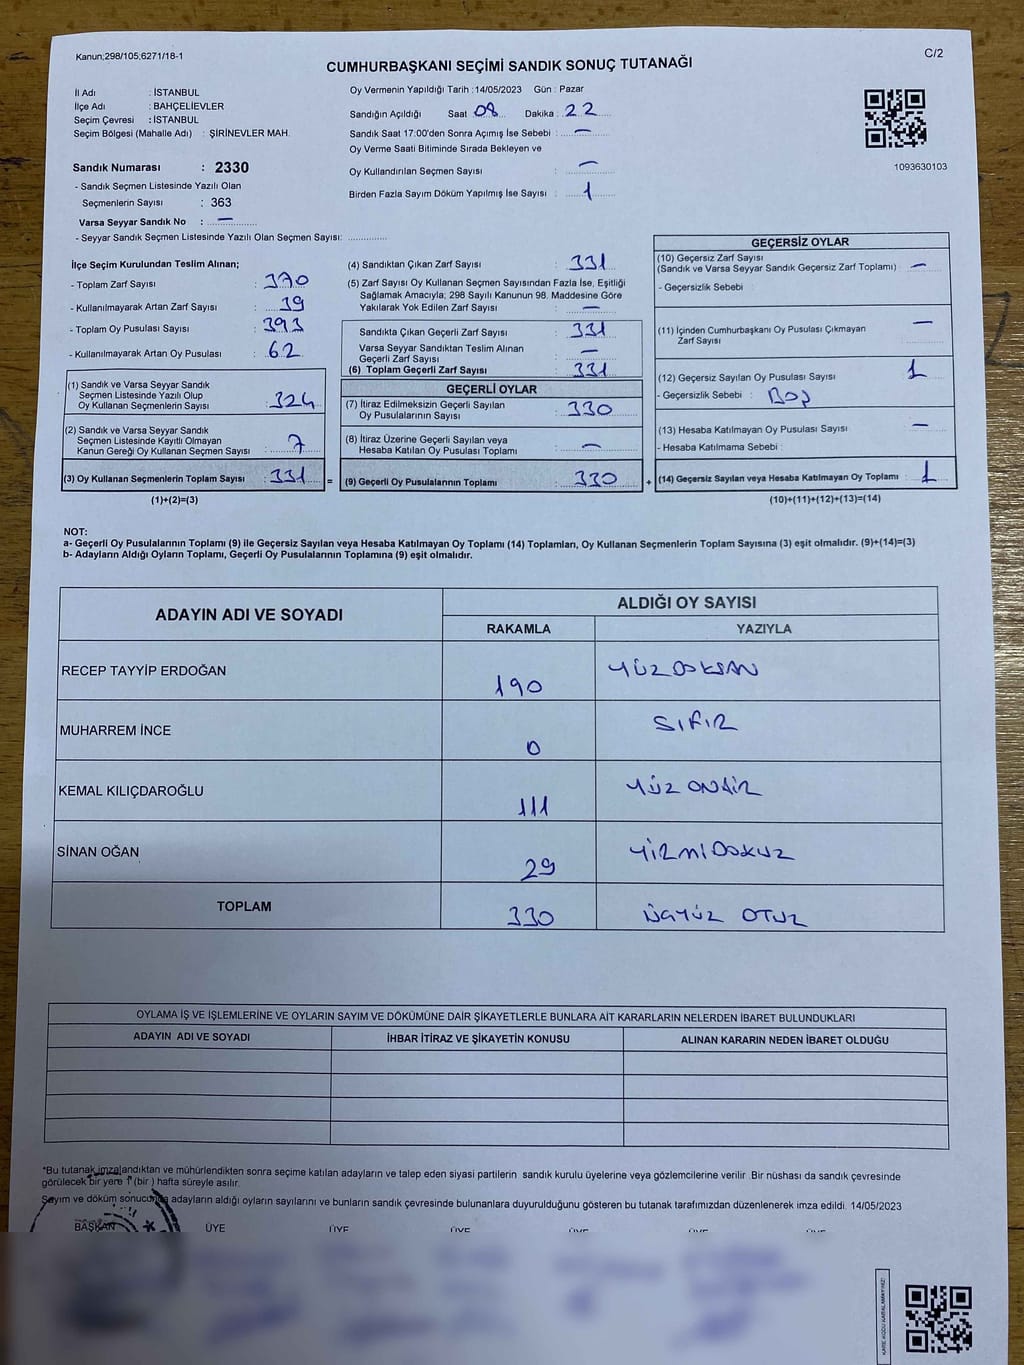 Kanun;298/105;6271/18-1
C/2
CUMHURBAŞKANI SEÇİMİ SANDIK SONUÇ TUTANAĞI
İl Adı : İSTANBUL
İlçe Adı : BAHÇELİEVLER
Seçim Çevresi : İSTANBUL
Seçim Bölgesi (Mahalle Adı) : ŞİRİNEVLER MAH.
Sandık Numarası : 2330
- Sandık Seçmen Listesinde Yazılı Olan
Seçmenlerin Sayısı : 363
Varsa Seyyar Sandık No : —
- Seyyar Sandık Seçmen Listesinde Yazılı Olan Seçmen Sayısı: ..............
Oy Vermenin Yapıldığı Tarih :14/05/2023 Gün : Pazar
Sandığın Açıldığı Saat 08 Dakika : 22
Sandık Saat 17:00'den Sonra Açımış İse Sebebi : —
Oy Verme Saati Bitiminde Sırada Bekleyen ve
Oy Kullandırılan Seçmen Sayısı : —
Birden Fazla Sayım Döküm Yapılmış İse Sayısı : 1
1093630103
İlçe Seçim Kurulundan Teslim Alınan;
- Toplam Zarf Sayısı : 370
- Kullanılmayarak Artan Zarf Sayısı : 39
- Toplam Oy Pusulası Sayısı : 393
- Kullanılmayarak Artan Oy Pusulası : 62
(1) Sandık ve Varsa Seyyar Sandık
Seçmen Listesinde Yazılı Olup
Oy Kullanan Seçmenlerin Sayısı : 324
(2) Sandık ve Varsa Seyyar Sandık
Seçmen Listesinde Kayıtlı Olmayan
Kanun Gereği Oy Kullanan Seçmen Sayısı : 7
(3) Oy Kullanan Seçmenlerin Toplam Sayısı : 331
(1)+(2)=(3)
=
(4) Sandıktan Çıkan Zarf Sayısı : 331
(5) Zarf Sayısı Oy Kullanan Seçmen Sayısından Fazla İse, Eşitliği
Sağlamak Amacıyla; 298 Sayılı Kanunun 98. Maddesine Göre
Yakılarak Yok Edilen Zarf Sayısı : —
Sandıkta Çıkan Geçerli Zarf Sayısı : 331
Varsa Seyyar Sandıktan Teslim Alınan
Geçerli Zarf Sayısı : —
(6) Toplam Geçerli Zarf Sayısı : 331
GEÇERLİ OYLAR
(7) İtiraz Edilmeksizin Geçerli Sayılan
Oy Pusulalarının Sayısı : 330
(8) İtiraz Üzerine Geçerli Sayılan veya
Hesaba Katılan Oy Pusulası Toplamı : —
(9) Geçerli Oy Pusulalarının Toplamı : 330
+
GEÇERSİZ OYLAR
(10) Geçersiz Zarf Sayısı
(Sandık ve Varsa Seyyar Sandık Geçersiz Zarf Toplamı) : —
- Geçersizlik Sebebi :
(11) İçinden Cumhurbaşkanı Oy Pusulası Çıkmayan
Zarf Sayısı : —
(12) Geçersiz Sayılan Oy Pusulası Sayısı : 1
- Geçersizlik Sebebi : BOŞ
(13) Hesaba Katılmayan Oy Pusulası Sayısı : —
- Hesaba Katılmama Sebebi :
(14) Geçersiz Sayılan veya Hesaba Katılmayan Oy Toplamı : 1
(10)+(11)+(12)+(13)=(14)
NOT:
a- Geçerli Oy Pusulalarının Toplamı (9) ile Geçersiz Sayılan veya Hesaba Katılmayan Oy Toplamı (14) Toplamları, Oy Kullanan Seçmenlerin Toplam Sayısına (3) eşit olmalıdır. (9)+(14)=(3)
b- Adayların Aldığı Oyların Toplamı, Geçerli Oy Pusulalarının Toplamına (9) eşit olmalıdır.
ADAYIN ADI VE SOYADI
ALDIĞI OY SAYISI
RAKAMLA YAZIYLA
RECEP TAYYİP ERDOĞAN 190 YÜZDOKSAN
MUHARREM İNCE 0 SIFIR
KEMAL KILIÇDAROĞLU 111 YÜZ ONBİR
SİNAN OĞAN 29 YİRMİDOKUZ
TOPLAM 330 ÜÇYÜZ OTUZ
OYLAMA İŞ VE İŞLEMLERİNE VE OYLARIN SAYIM VE DÖKÜMÜNE DAİR ŞİKAYETLERLE BUNLARA AİT KARARLARIN NELERDEN İBARET BULUNDUKLARI
ADAYIN ADI VE SOYADI İHBAR İTİRAZ VE ŞİKAYETİN KONUSU ALINAN KARARIN NEDEN İBARET OLDUĞU
*Bu tutanak imzalandıktan ve mühürlendikten sonra seçime katılan adayların ve talep eden siyasi partilerin sandık kurulu üyelerine veya gözlemcilerine verilir. Bir nüshası da sandık çevresinde
görülecek bir yere 1 (bir ) hafta süreyle asılır.
Sayım ve döküm sonucunda adayların aldığı oyların sayılarını ve bunların sandık çevresinde bulunanlara duyurulduğunu gösteren bu tutanak tarafımızdan düzenlenerek imza edildi. 14/05/2023
BAŞKAN ÜYE ÜYE ÜYE ÜYE ÜYE ÜYE